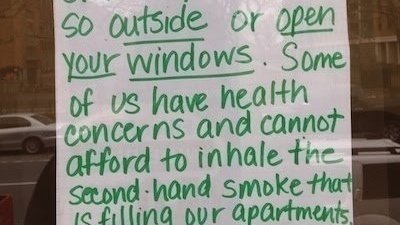 so outside or open
your windows. Some
of us have health
concerns and cannot
afford to inhale the
second-hand smoke that
is filling our apartments.